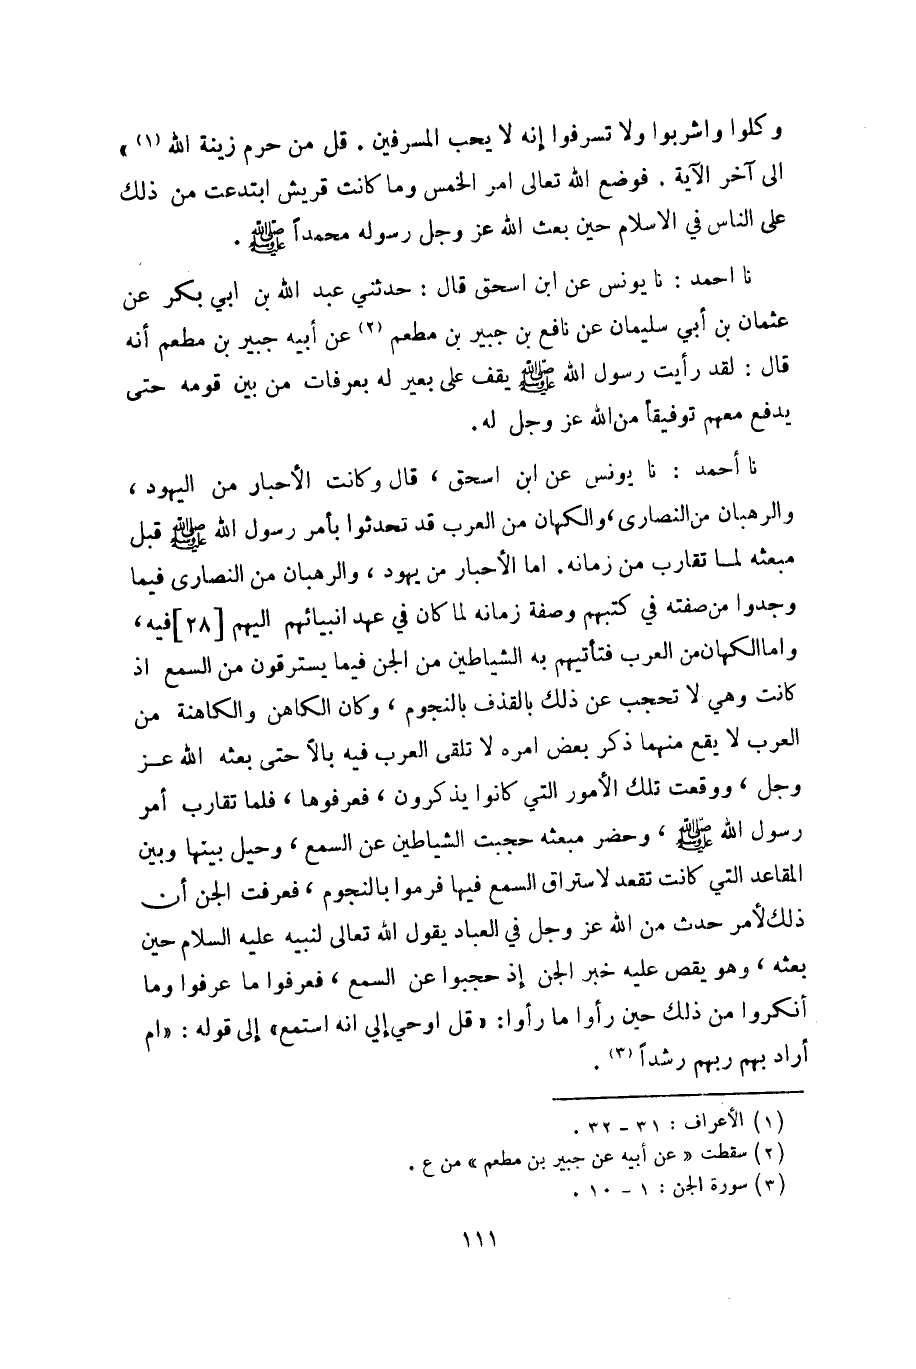 وكلوا واشربوا ولا تسرفوا إنه لا يحب المسرفين . قل من حرم زينة الله (١) »
الى آخر الآية . فوضع الله تعالى امر الخمس وما كانت قريش ابتدعت من ذلك
على الناس في الاسلام حين بعث الله عز وجل رسوله محمداً ﷺ .
نا احمد : نا يونس عن ابن اسحق قال : حدثني عبد الله بن ابي بكر عن
عثمان بن أبي سليمان عن نافع بن جبير بن مطعم (٢) عن أبيه جبير بن مطعم أنه
قال : لقد رأيت رسول الله ﷺ يقف على بعير له بعرفات من بين قومه حتى
يدفع معهم توفيقاً من الله عز وجل له .
نا أحمد : نا يونس عن ابن اسحق ، قال وكانت الأحبار من اليهود ،
والرهبان من النصارى ، والكهان من العرب قد تحدثوا بأمر رسول الله ﷺ قبل
مبعثه لمـا تقارب من زمانه . اما الأحبار من يهود ، والرهبان من النصارى فيما
وجدوا من صفته في كتبهم وصفة زمانه لما كان في عهد انبيائهم اليهم [٢٨] فيه ،
واما الكهان من العرب فتأتيهم به الشياطين من الجن فيما يسترقون من السمع اذ
كانت وهي لا تحجب عن ذلك بالقذف بالنجوم ، وكان الكاهن والكاهنة من
العرب لا يقع منهما ذكر بعض امره لا تلقى العرب فيه بالاً حتى بعثه الله عـز
وجل ، ووقعت تلك الأمور التي كانوا يذكرون ، فعرفوها ، فلما تقارب أمر
رسول الله ﷺ ، وحضر مبعثه حجبت الشياطين عن السمع ، وحيل بينها وبين
المقاعد التي كانت تقعد لاستراق السمع فيها فرموا بالنجوم ، فعرفت الجن أن
ذلك لأمر حدث من الله عز وجل في العباد يقول الله تعالى لنبيه عليه السلام حين
بعثه ، وهو يقص عليه خبر الجن إذ حجبوا عن السمع ، فعرفوا ما عرفوا وما
أنكروا من ذلك حين رأوا ما رأوا : « قل اوحي إلي انه استمع » إلى قوله : « ام
أراد بهم ربهم رشداً (٣) .
(١) الأعراف : ٣١ - ٣٢ .
(٢) سقطت « عن أبيه عن جبير بن مطعم » من ع .
(٣) سورة الجن : ١ - ١٠ .
١١١